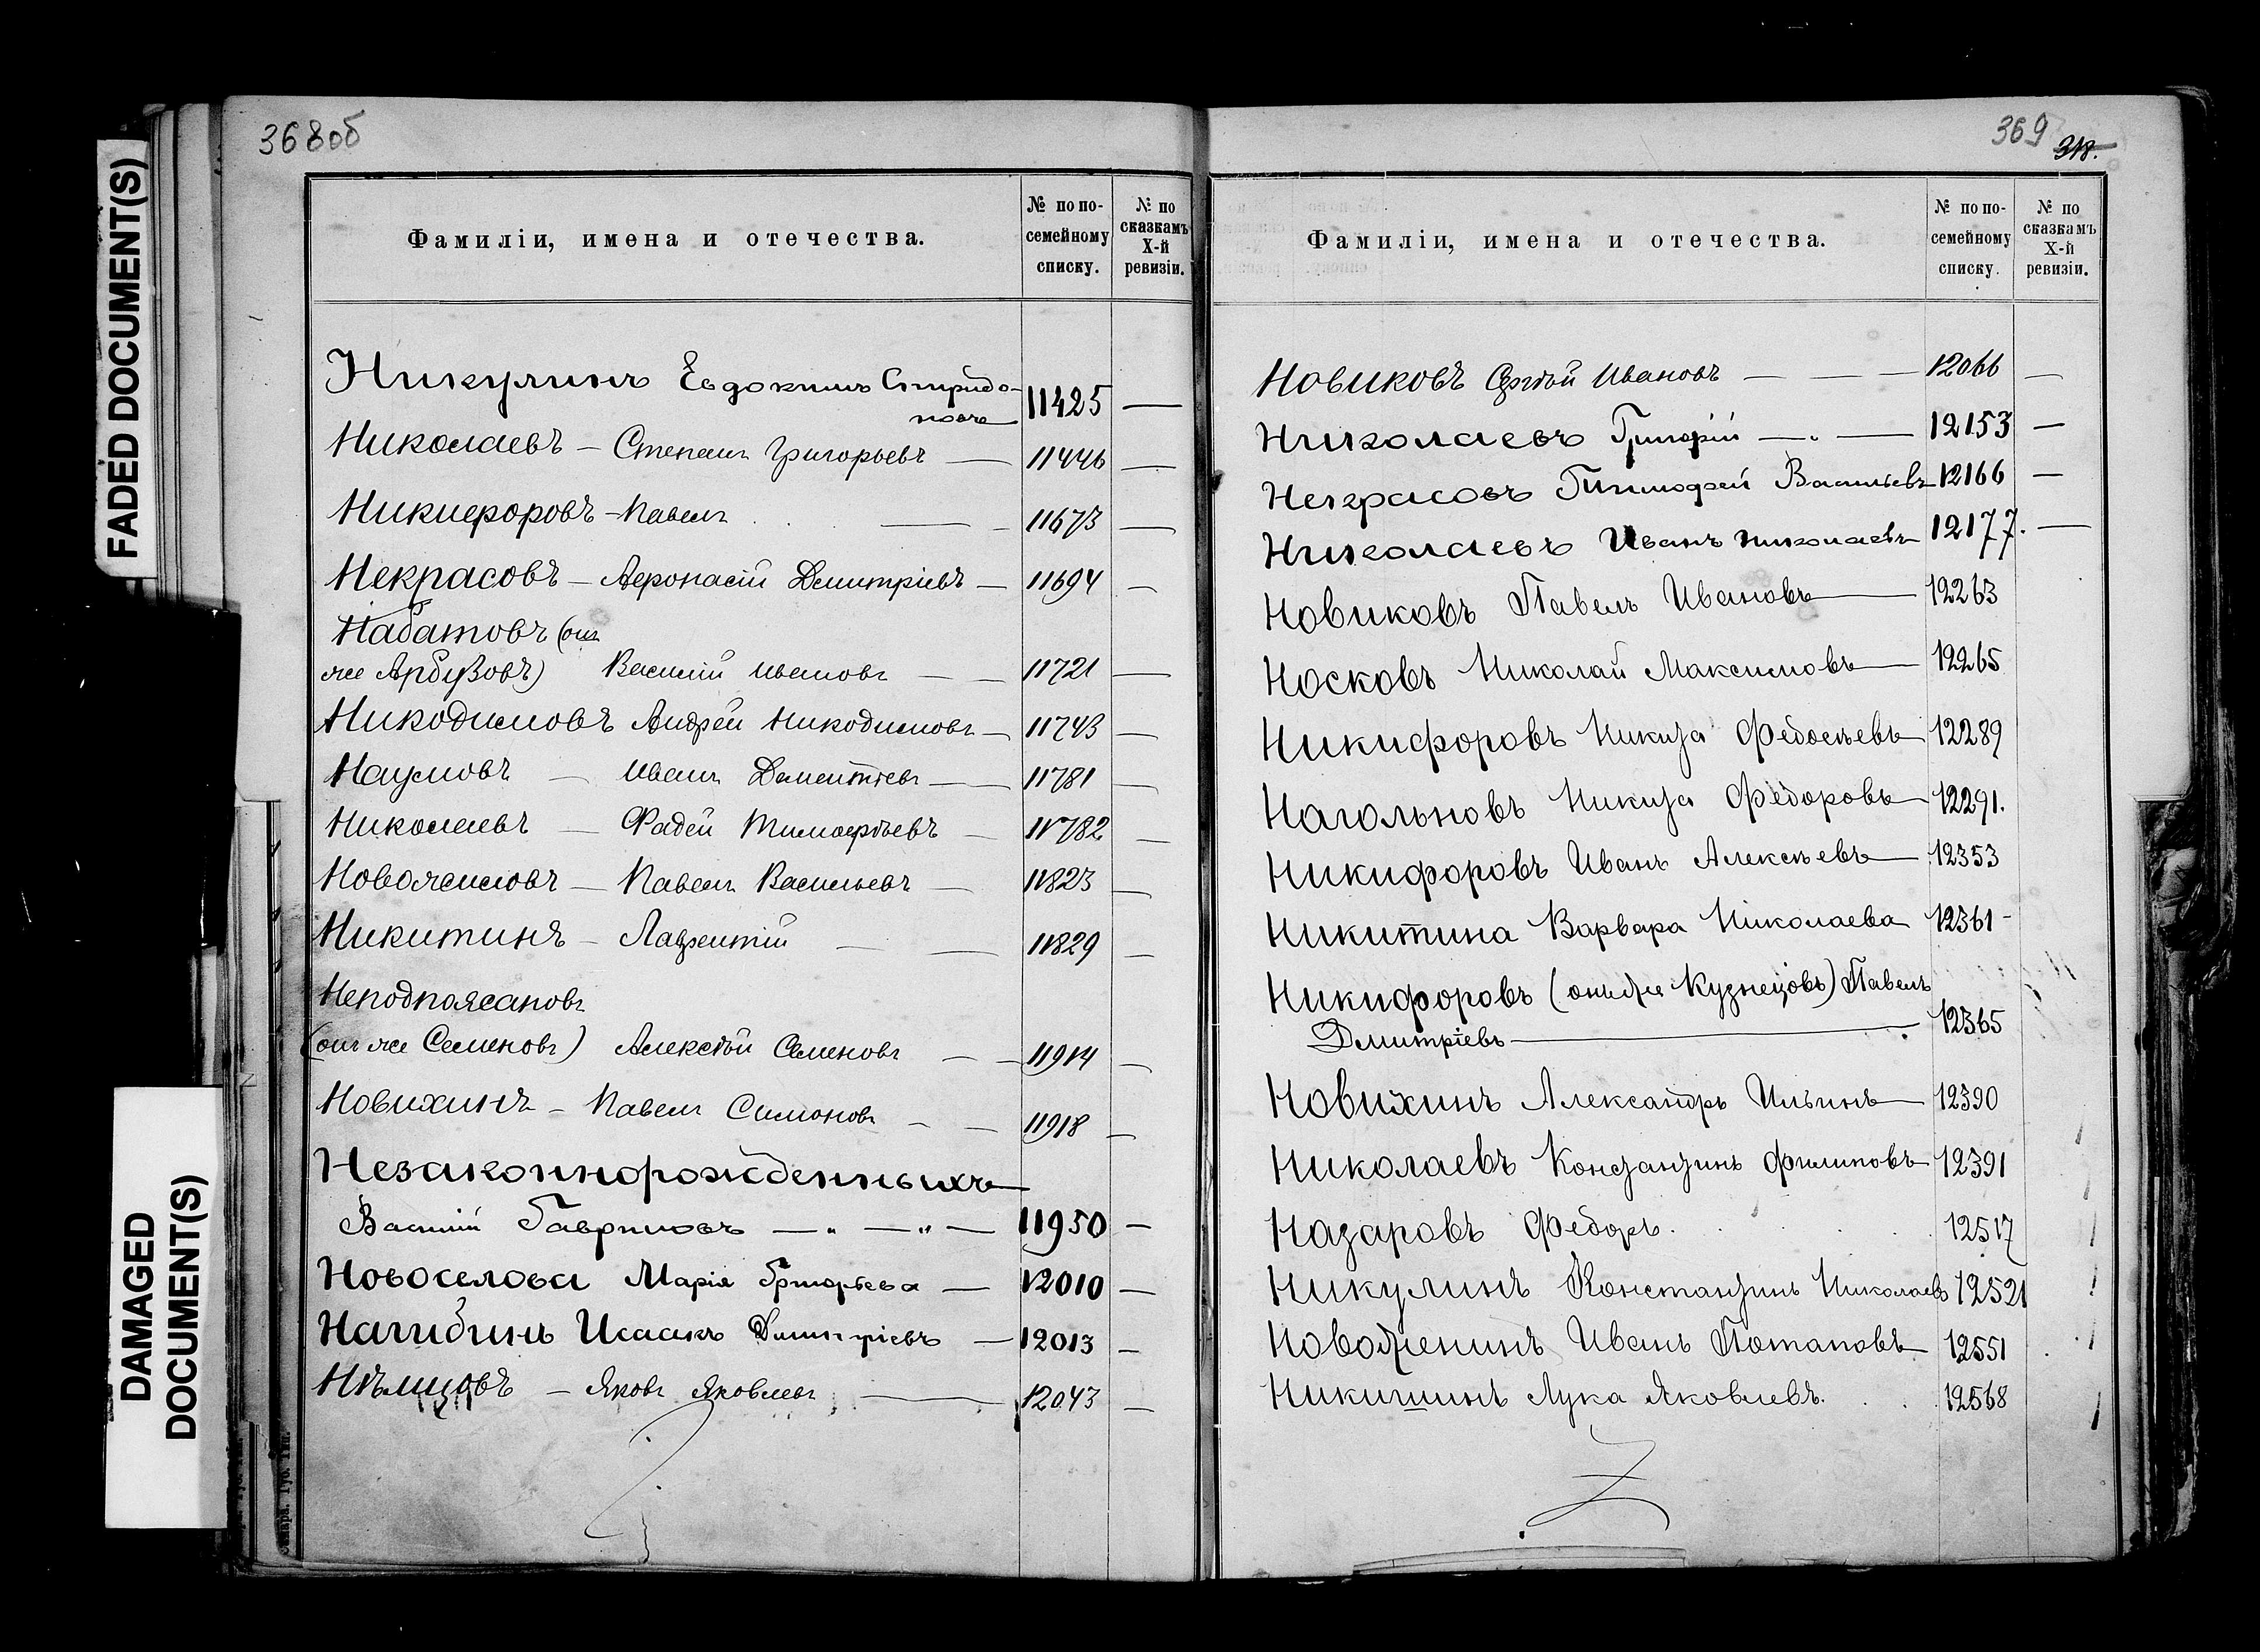 FADED DOCUMENT(S)
DAMAGED
DOCUMENT(S)
368об
Фамиліи, имена и отечества.
№ по по-
семейному
списку.
№ по
сказкамъ
X-й
ревизіи.
Никулинъ Евдокимъ Спиридо-
новъ 11425 —
Николаевъ — Степанъ Григорьевъ — 11446 —
Никифоровъ — Павелъ — 11673 —
Некрасовъ — Афонасій Дмитріевъ — 11694 —
Набатовъ (онъ
же Арбузовъ) Василій Ивановъ — — 11721 —
Никодимовъ Андрей Никодимовъ — 11743 —
Наумовъ — Иванъ Дементіевъ — 11781 —
Николаевъ — Фадей Тимофѣевъ — 11782 —
Новоясиловъ — Павелъ Васильевъ — 11823 —
Никитинъ — Лаврентій — — 11829 —
Неподпоясановъ
(онъ же Семеновъ) Алексѣй Семеновъ — — 11914 —
Новихинъ — Павелъ Симоновъ — — 11918 —
Незаконнорожденныхъ
Василій Гавриловъ — „ — „ — 11950 —
Новоселова Марія Григорьева — 12010 —
Нагибинъ Исаакъ Дмитріевъ — 12013 —
Нѣмцовъ — Яковъ Яковлевъ — 12043 —
369 318.
Фамиліи, имена и отечества.
№ по по-
семейному
списку.
№ по
сказкамъ
X-й
ревизіи.
Новиковъ Сергѣй Ивановъ — — — 12066 —
Николаевъ Григорій — „ — 12153 —
Некрасовъ Тимофей Васильевъ 12166 —
Николаевъ Иванъ Николаевъ 12177. —
Новиковъ Павелъ Ивановъ — 12263
Носковъ Николай Максимовъ — 12265
Никифоровъ Никита Федосѣевъ — 12289
Нагольновъ Никита Федоровъ — 12291.
Никифоровъ Иванъ Алексѣевъ — 12353
Никитина Варвара Николаева 12361 -
Никифоровъ (онъ же Кузнецовъ) Павелъ
Дмитріевъ — 12365
Новихинъ Александръ Ильинъ — 12390
Николаевъ Константинъ Филиповъ — 12391
Назаровъ Федоръ. 12517
Никулинъ Константинъ Николаевъ 12521
Новоженинъ Иванъ Потаповъ — 12551
Никишинъ Лука Яковлевъ. 12568